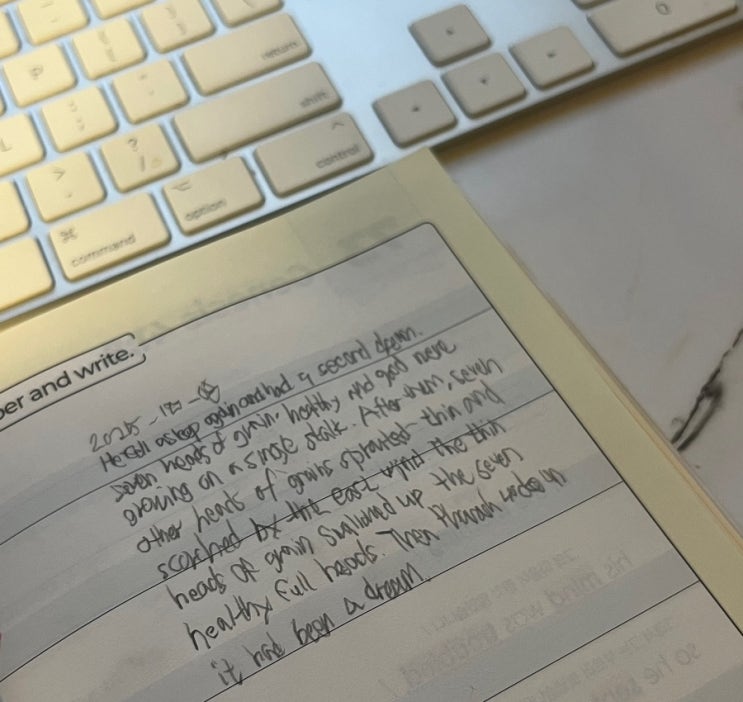 return
shift
control
option
command
⌘
P
L
?
/
>
.
0
er and write.
He fell asleep again and had a second dream.
seven heads of grain, healthy and good were
growing on a single stalk. After them, seven
other heads of grains sprouted - thin and
scorched by the east wind the thin
heads of grain swallowed up the seven
healthy full heads. Then Pharaoh woke up
it had been a dream.
his mind was
so he